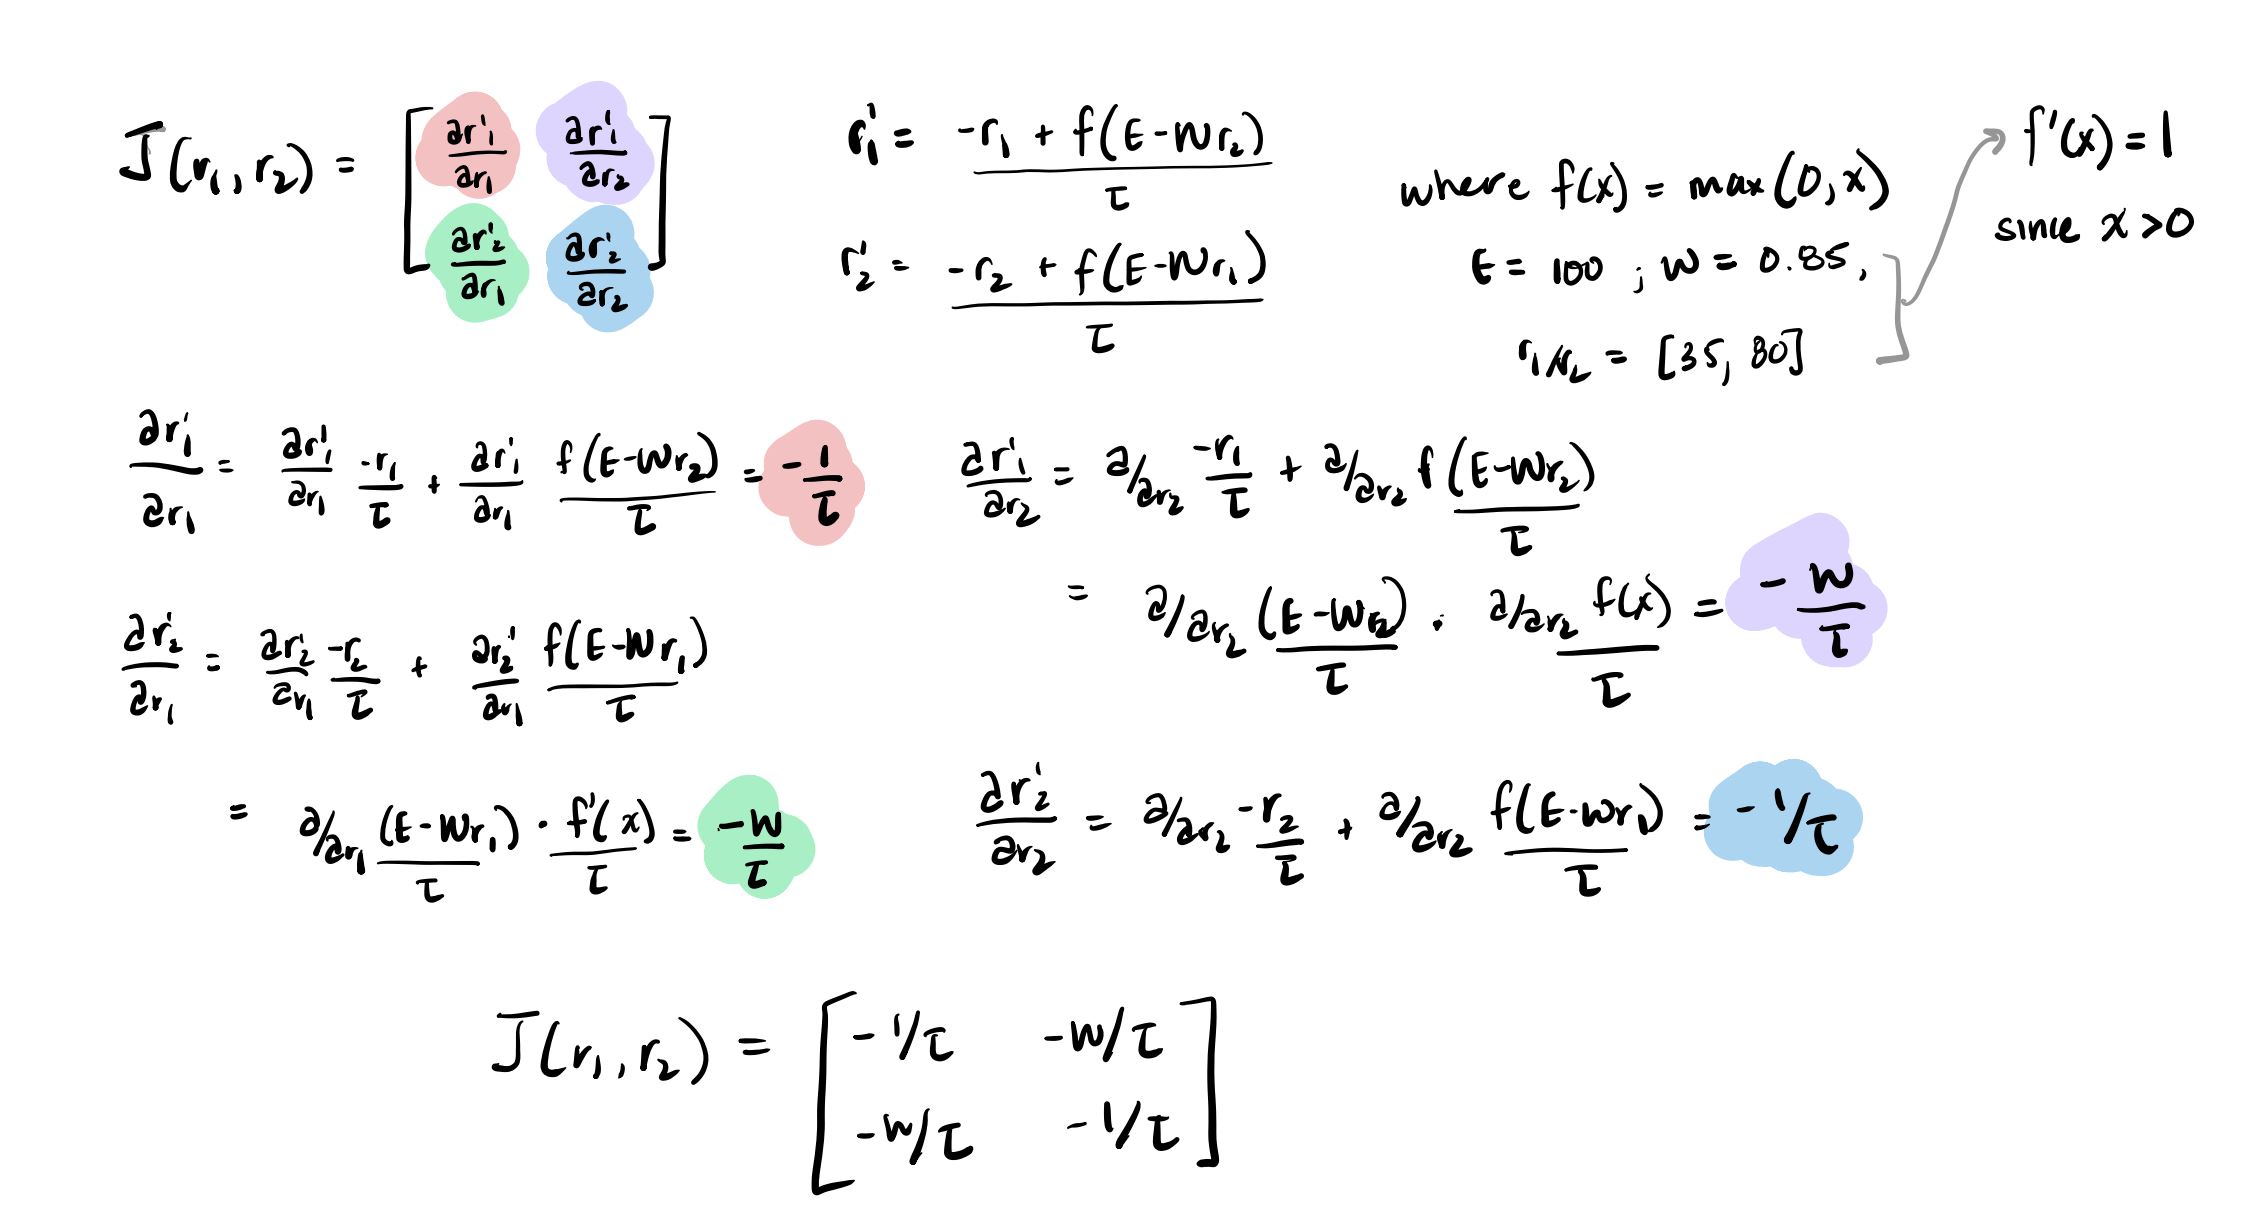 J(r₁, r₂) = [ ∂r₁'/∂r₁ ∂r₁'/∂r₂
∂r₂'/∂r₁ ∂r₂'/∂r₂ ]
r₁' = (-r₁ + f(E-Wr₂))/τ
r₂' = (-r₂ + f(E-Wr₁))/τ
where f(x) = max(0, x)
E = 100 ; W = 0.85,
r₁/r₂ = [35, 80]
f'(x) = 1
since x > 0
∂r₁'/∂r₁ = ∂r₁'/∂r₁ -r₁/τ + ∂r₁'/∂r₁ f(E-Wr₂)/τ = -1/τ
∂r₁'/∂r₂ = ∂/∂r₂ -r₁/τ + ∂/∂r₂ f(E-Wr₂)/τ
= ∂/∂r₂ (E-Wr₂)/τ · ∂/∂r₂ f(x)/τ = -W/τ
∂r₂'/∂r₁ = ∂r₂'/∂r₁ -r₂/τ + ∂r₂'/∂r₁ f(E-Wr₁)/τ
= ∂/∂r₁ (E-Wr₁)/τ · f'(x)/τ = -W/τ
∂r₂'/∂r₂ = ∂/∂r₂ -r₂/τ + ∂/∂r₂ f(E-Wr₁)/τ = -1/τ
J(r₁, r₂) = [ -1/τ -W/τ
-W/τ -1/τ ]